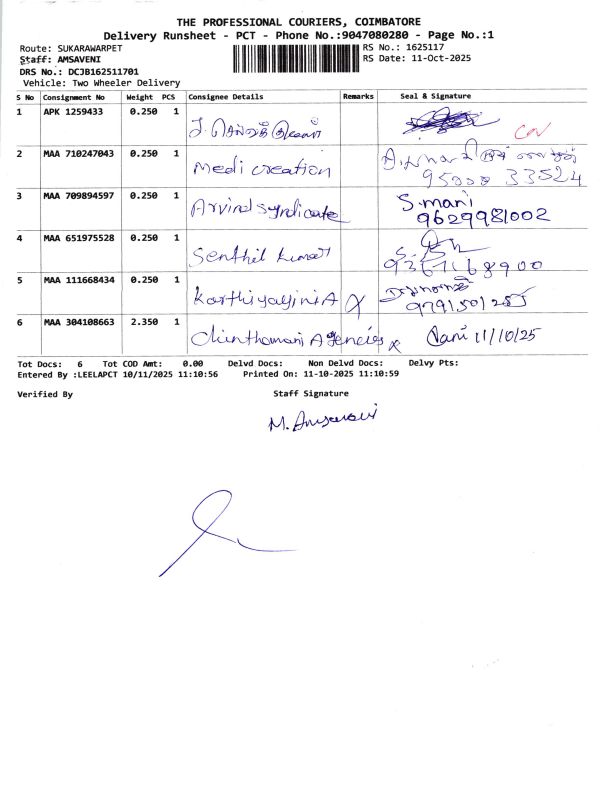 THE PROFESSIONAL COURIERS, COIMBATORE
Delivery Runsheet - PCT - Phone No.:9047080280 - Page No.:1
Route: SUKARAWARPET RS No.: 1625117
Staff: AMSAVENI RS Date: 11-Oct-2025
DRS No.: DCJB162511701
Vehicle: Two Wheeler Delivery
S No Consignment No Weight PCS Consignee Details Remarks Seal & Signature
1 APK 1259433 0.250 1
2 MAA 710247043 0.250 1 Medi creation
95008 33524
3 MAA 709894597 0.250 1 Arvind syndicate S.mani
9629981002
4 MAA 651975528 0.250 1 Senthil kumar
9361168900
5 MAA 111668434 0.250 1 Karthiyayini A
9791501255
6 MAA 304108663 2.350 1 Chinthamani Agencies x Vani 11/10/25
Tot Docs: 6 Tot COD Amt: 0.00 Delvd Docs: Non Delvd Docs: Delvy Pts:
Entered By :LEELAPCT 10/11/2025 11:10:56 Printed On: 11-10-2025 11:10:59
Verified By Staff Signature
M. Amsaveni